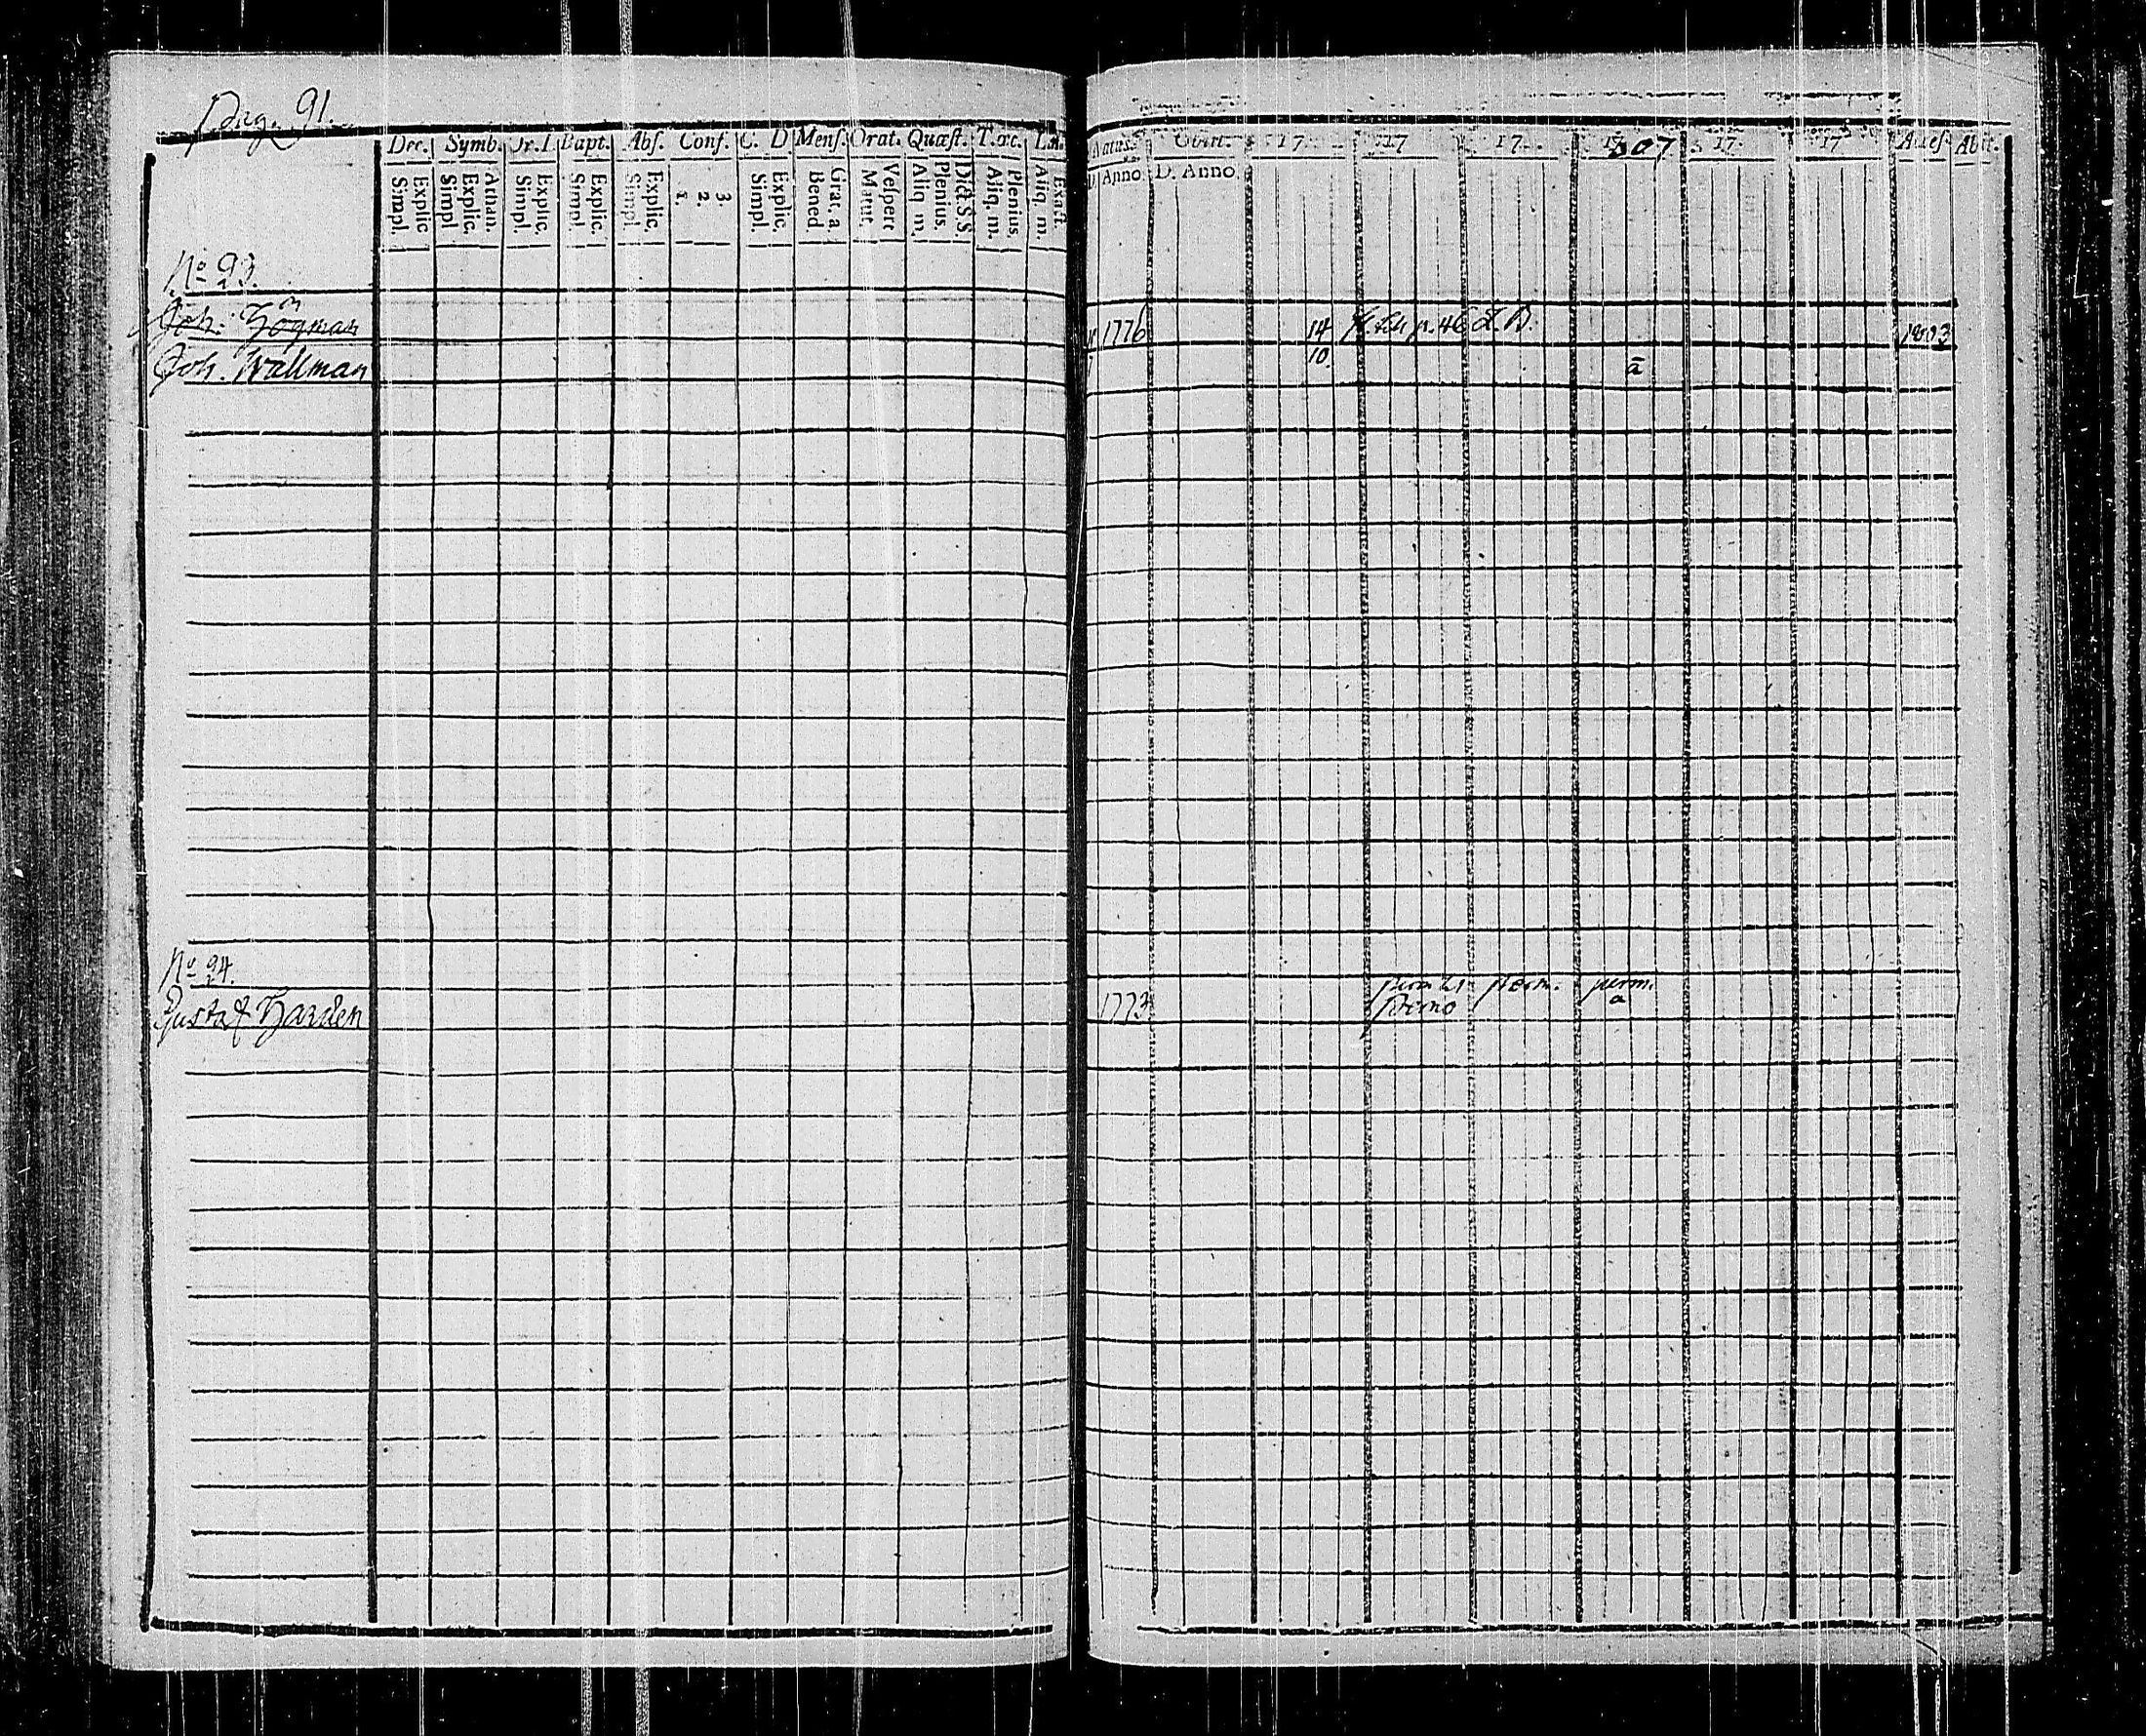 Pag. 91.
Dec. Symb. Or. D Bapt. Abs. Conf. C. D Mens. Orat. Quæst. T. œc.
Simpl. Explic Simpl Explic. Athan. Simpl. Explic. Simpl. Explic. Simpl Explic. 1. 2. 3. Simpl. Explic. Bened Grat. a Matut. Vespert Aliq m. Plenius. Dict. S.S. Aliq. m. Plenius. Aliq. m. Exact.
No 93.
Joh. Högman
Joh. Wallman
No 94.
Gustaf Harden
Natus. Obiit. 17 17 17 1807 17 17 Acces. Abit.
D. Anno D. Anno
1776 14 p. 46 L. B. 1803
10. ā
perm. perm.
1773 primo a